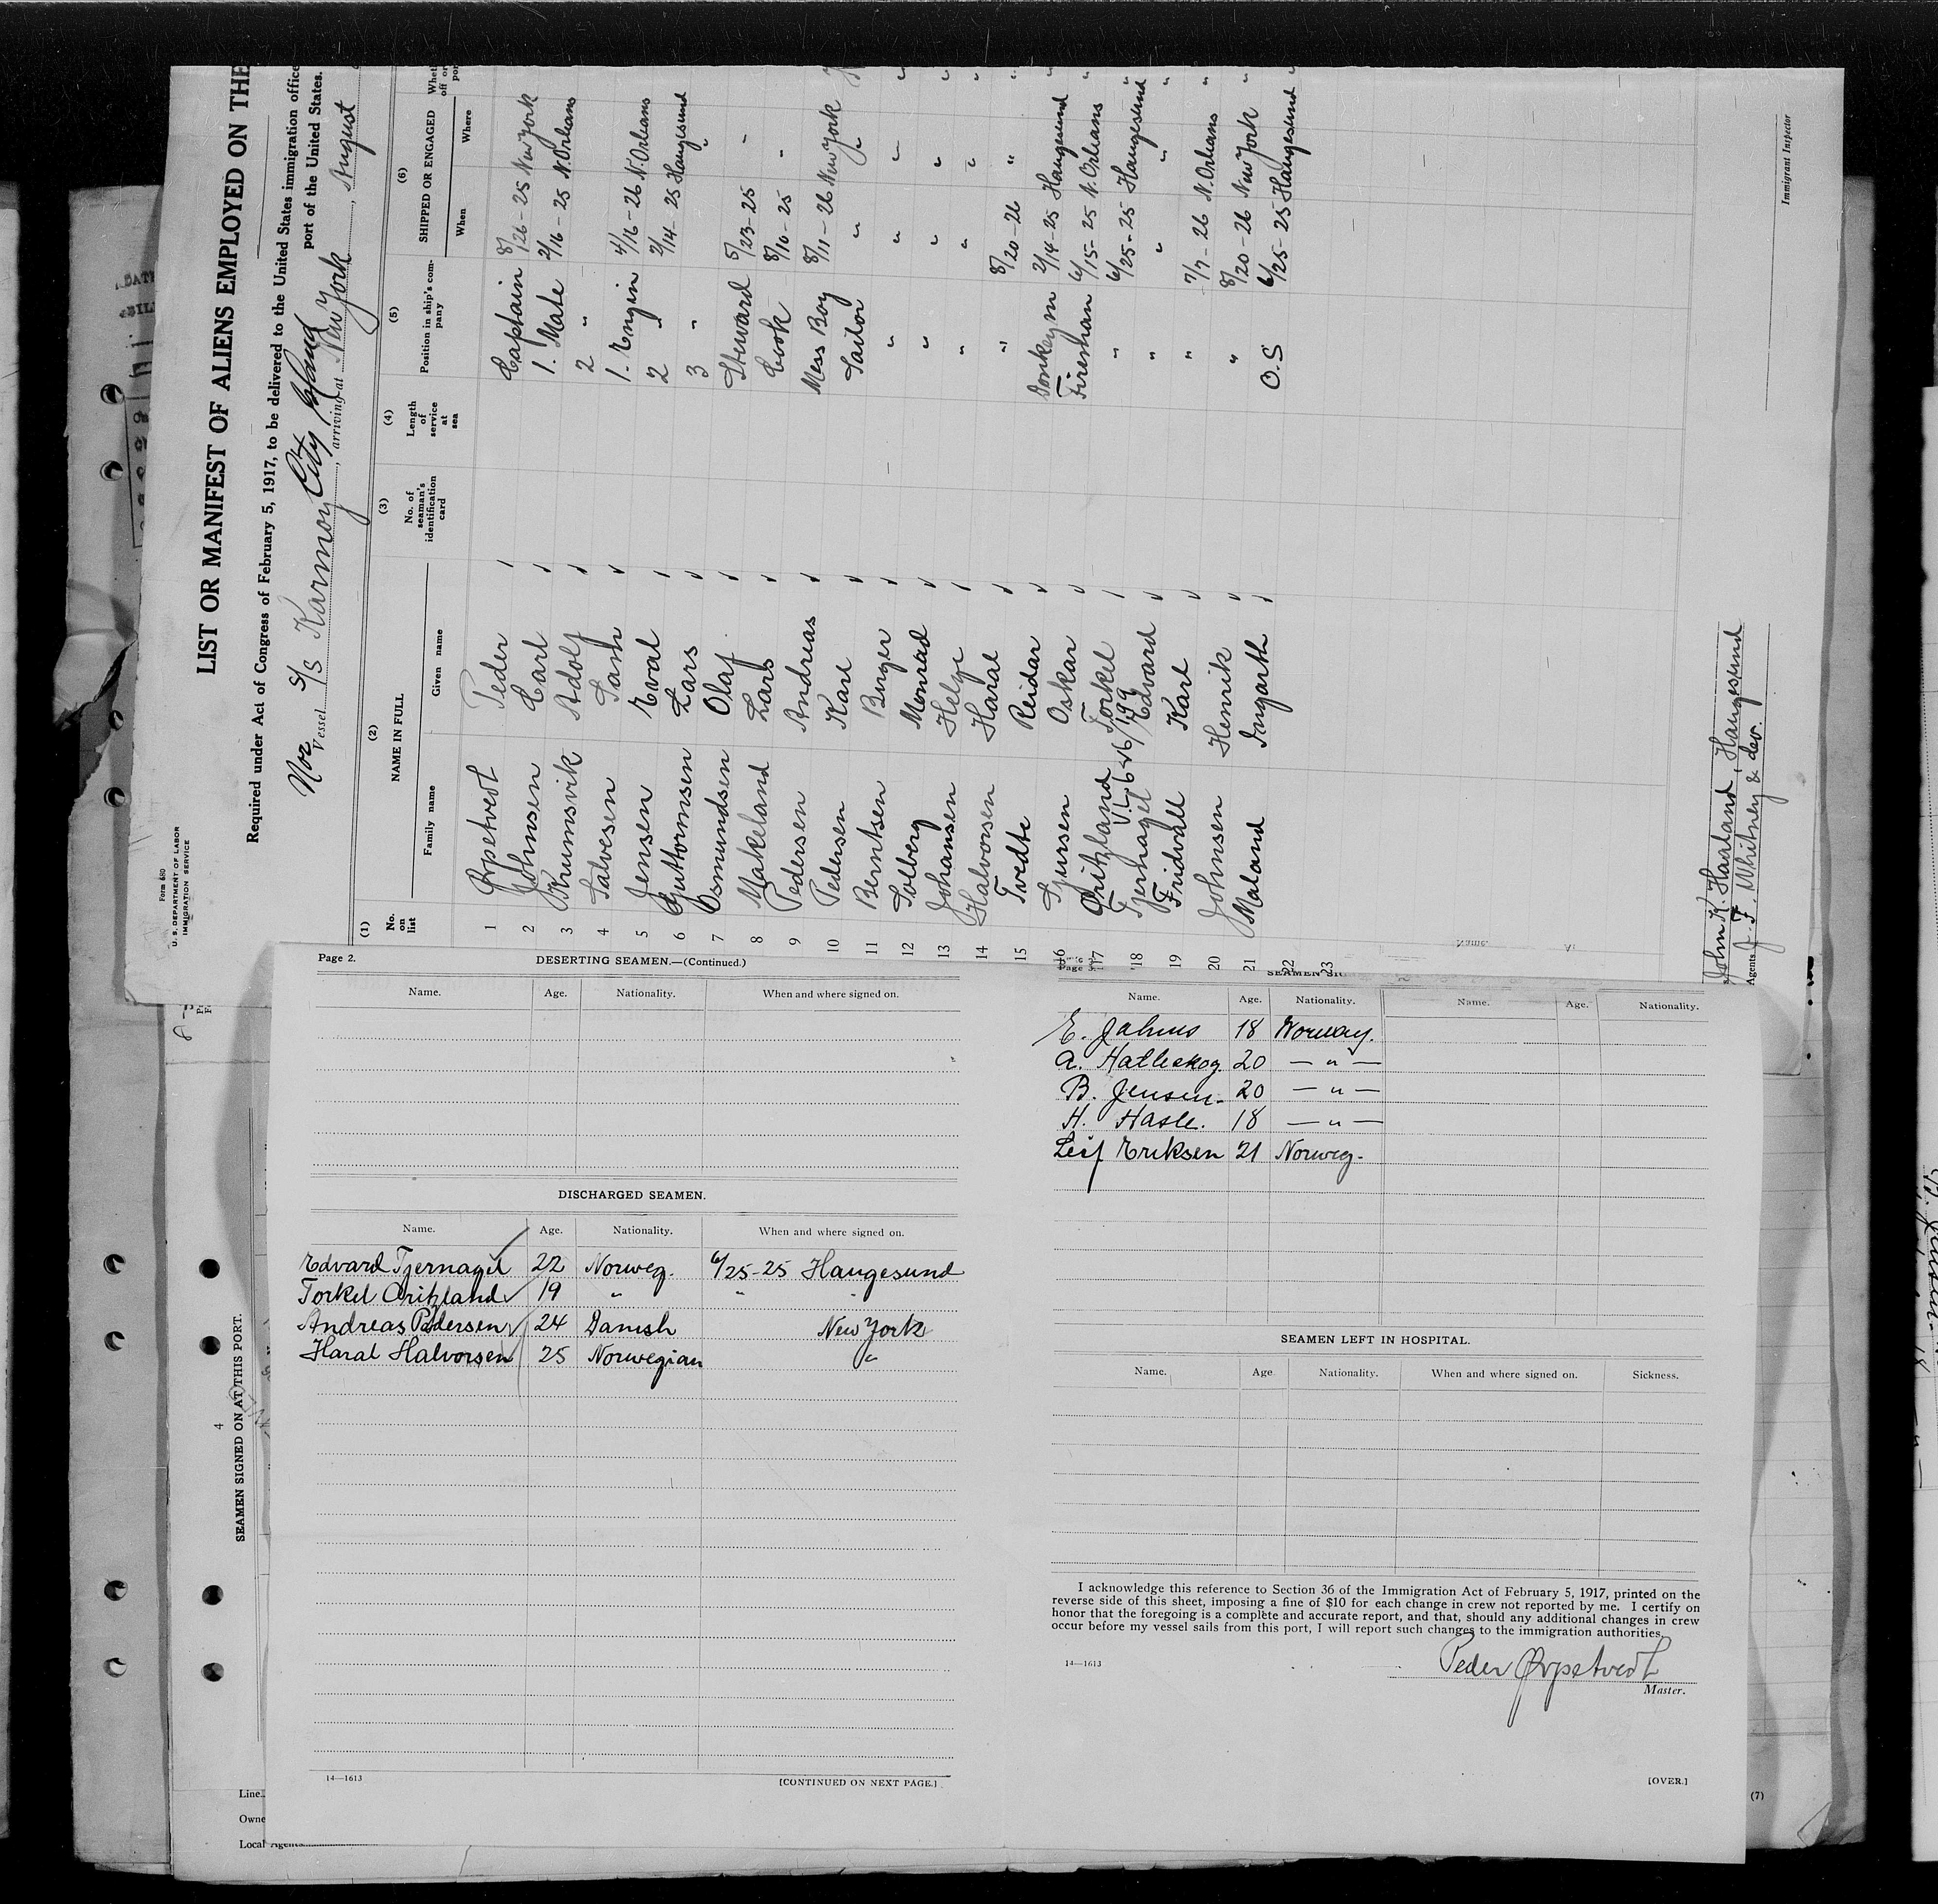 Form 680
U. S. DEPARTMENT OF LABOR
IMMIGRATION SERVICE
LIST OR MANIFEST OF ALIENS EMPLOYED ON THE
Required under Act of Congress of February 5, 1917, to be delivered to the United States immigration office
port of the United States.
Nor Vessel S/S Karmoy City Island, arriving at New York, August
(1) (2) (3) (4) (5) (6)
No. on list NAME IN FULL No. of seaman's identification card Length of service at sea Position in ship's company SHIPPED OR ENGAGED
Family name Given name When Where
1 Øvpetvedt Peder Captain 8/26-25 New York
2 Johnsen Carl 1. Mate 2/16-25 N. Orleans
3 Krumsvik Adolf 2 "
4 Salvesen 1. Engin 4/16-26 N. Orleans
5 Jensen Eval 2 " 2/14-25 Haugesund
6 Guttormsen Lars 3 " "
7 Osmundsen Olaf Steward 5/23-25 "
8 Makeland Lars Cook 8/10-25 "
9 Pedersen Andreas Mess Boy 8/11-26 New York
10 Pedersen Karl Sailor " "
11 Berntsen Birger " " "
12 Solberg Monrad " " "
13 Johansen Helge " "
14 Halvorsen Haral
15 Tvedte Reidar " 8/20-26 "
16 Sjursen Oskar Donkeym 2/14-25 Haugesund
17 Torkel Fireman 6/15-25 N. Orleans
18 Tjernagel Edvard " 6/25-25 Haugesund
19 Fridvall Karl " " "
20 Johnsen Henrik " 7/7-26 N. Orleans
21 Maland Ingarth O.S 8/20-26 New York
22 6/25-25 Haugesund
23
John K. Haaland, Haugesund
Agents J. F. Whitney & Co.
Immigrant Inspector
Page 2.
DESERTING SEAMEN.—(Continued.)
Name. Age. Nationality. When and where signed on.
DISCHARGED SEAMEN.
Name. Age. Nationality. When and where signed on.
Edvard Tjernagel 22 Norweg. 6/25-25 Haugesund
Torkel 19 " " "
Andreas Pedersen 24 Danish New York
Haral Halvorsen 25 Norwegian "
14—1613
[CONTINUED ON NEXT PAGE.]
Name. Age. Nationality. Name. Age. Nationality.
E. Jahns 18 Norway.
A. Hatleskog 20 — " —
B. Jensen 20 — " —
H. Hasle. 18 — " —
Leif Eriksen 21 Norweg.
SEAMEN LEFT IN HOSPITAL.
Name. Age Nationality. When and where signed on. Sickness.
I acknowledge this reference to Section 36 of the Immigration Act of February 5, 1917, printed on the
reverse side of this sheet, imposing a fine of $10 for each change in crew not reported by me. I certify on
honor that the foregoing is a complete and accurate report, and that, should any additional changes in crew
occur before my vessel sails from this port, I will report such changes to the immigration authorities.
Peder Øvpetvedt
Master.
14—1613
[OVER.]
4
SEAMEN SIGNED ON AT THIS PORT.
Line
Owne
Local Agents
(7)